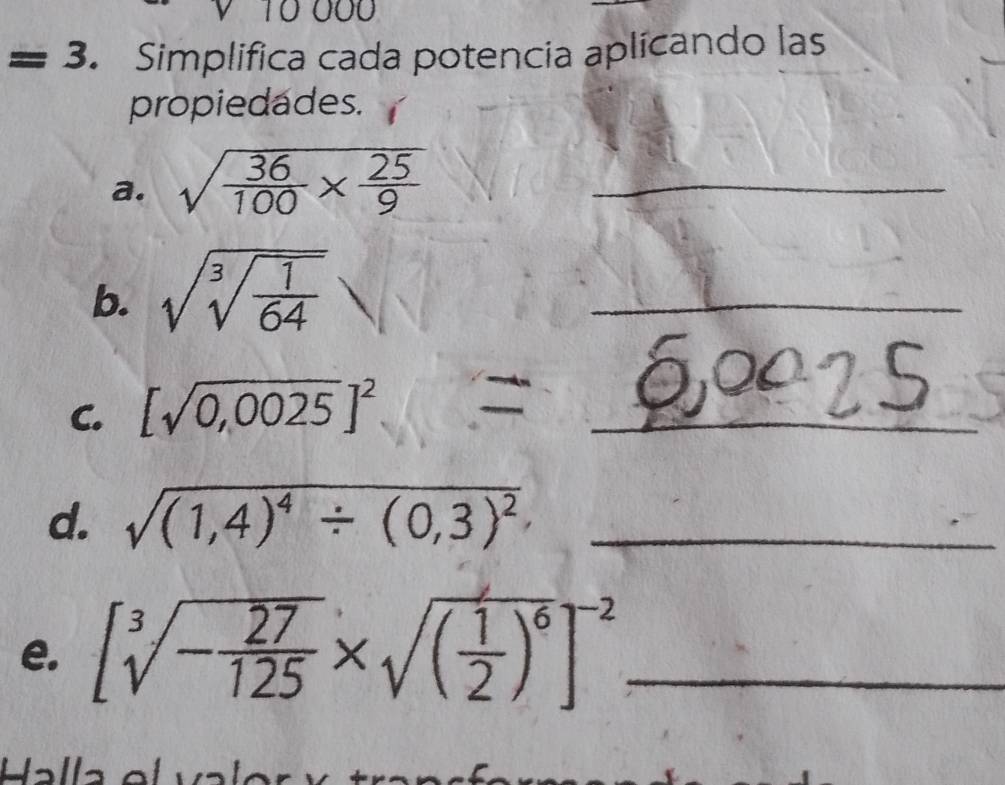 √10 000
3. Simplifica cada potencia aplicando las
propiedades.
a. √(36/100 × 25/9)
b. √(∛(1/64))
c. [√0,0025]² = 0,0025
d. √((1,4)⁴ ÷ (0,3)²)
e. [∛(-27/125) × √((1/2)⁶)]⁻²
Halla el valor y